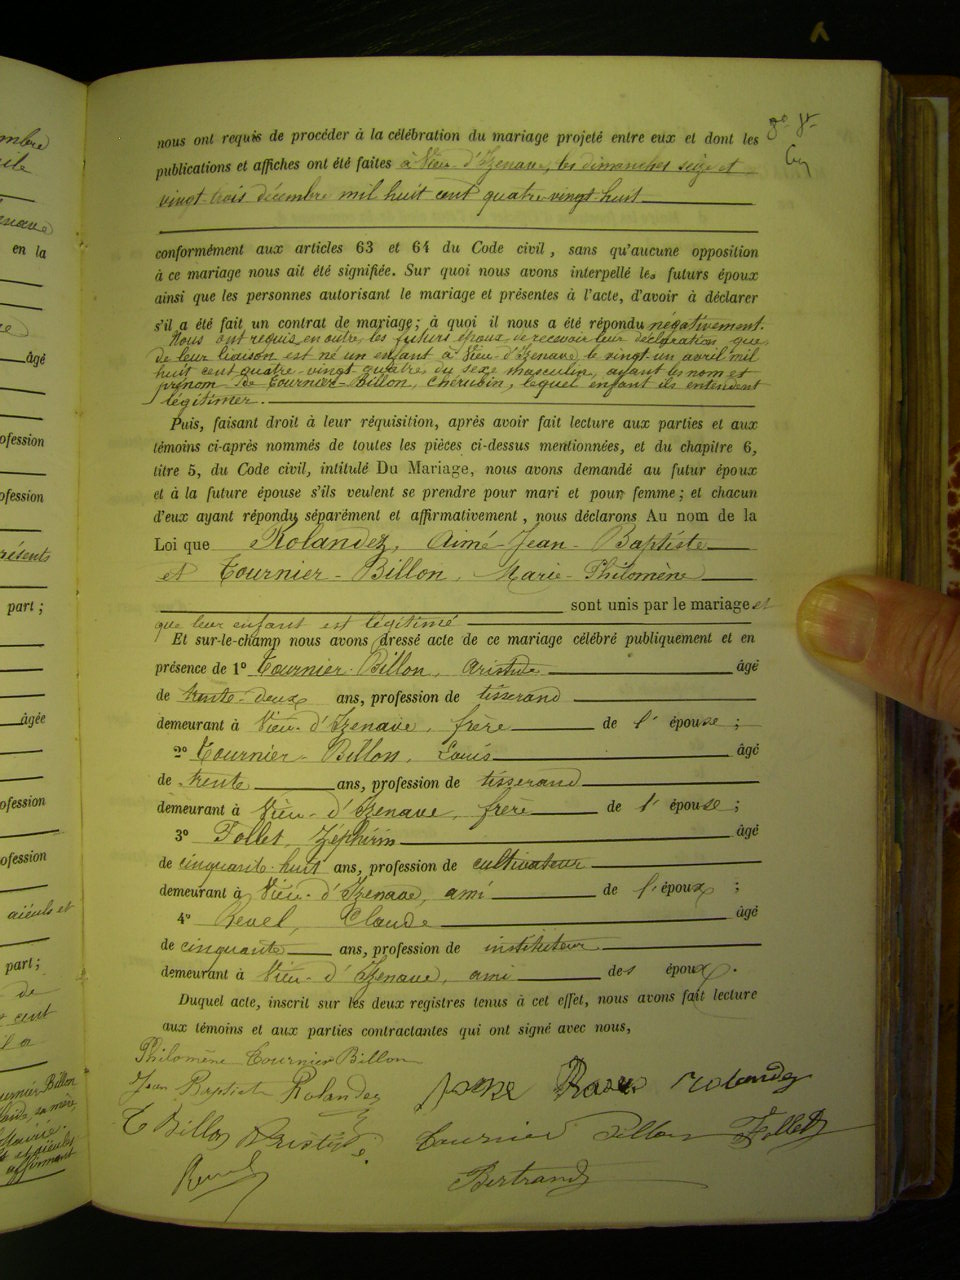 nous ont requis de procéder à la célébration du mariage projeté entre eux et dont les
publications et affiches ont été faites à Vieu-d'Izenave, les dimanches seize et
vingt-trois décembre mil huit cent quatre-vingt-huit
conformément aux articles 63 et 64 du Code civil, sans qu'aucune opposition
à ce mariage nous ait été signifiée. Sur quoi nous avons interpellé les futurs époux
ainsi que les personnes autorisant le mariage et présentes à l'acte, d'avoir à déclarer
s'il a été fait un contrat de mariage; à quoi il nous a été répondu négativement.
Nous ont requis, en outre, les futurs époux, de recevoir leur déclaration que
de leur liaison est né un enfant à Vieu-d'Izenave, le vingt-un avril mil
huit cent quatre-vingt-quatre, du sexe masculin, ayant les nom et
prénom de Tournier-Billon, Chérubin, lequel enfant ils entendent
légitimer.
Puis, faisant droit à leur réquisition, après avoir fait lecture aux parties et aux
témoins ci-après nommés de toutes les pièces ci-dessus mentionnées, et du chapitre 6,
titre 5, du Code civil, intitulé Du Mariage, nous avons demandé au futur époux
et à la future épouse s'ils veulent se prendre pour mari et pour femme; et chacun
d'eux ayant répondu séparément et affirmativement, nous déclarons Au nom de la
Loi que Rolandez, Aimé-Jean-Baptiste
et Tournier-Billon, Marie-Philomène
sont unis par le mariage et
que leur enfant est légitimé
Et sur-le-champ nous avons dressé acte de ce mariage célébré publiquement et en
présence de 1° Tournier-Billon, Aristide âgé
de trente-deux ans, profession de tisserand
demeurant à Vieu-d'Izenave, frère de l'épouse;
2° Tournier-Billon, Louis âgé
de trente ans, profession de tisserand
demeurant à Vieu-d'Izenave, frère de l'épouse;
3° Pollet, Zéphirin âgé
de cinquante-huit ans, profession de cultivateur
demeurant à Vieu-d'Izenave, ami de l'époux;
4° Revel, Claude âgé
de cinquante ans, profession de instituteur
demeurant à Vieu-d'Izenave, ami des époux.
Duquel acte, inscrit sur les deux registres tenus à cet effet, nous avons fait lecture
aux témoins et aux parties contractantes qui ont signé avec nous,
Philomène Tournier Billon
Jean Baptiste Rolandez Rolandez
T Billon Aristide Tournier Billon
Revel Bertrand
en la
âgé
profession
profession
présents
part;
âgée
profession
profession
aïeuls et
part;
de
cent